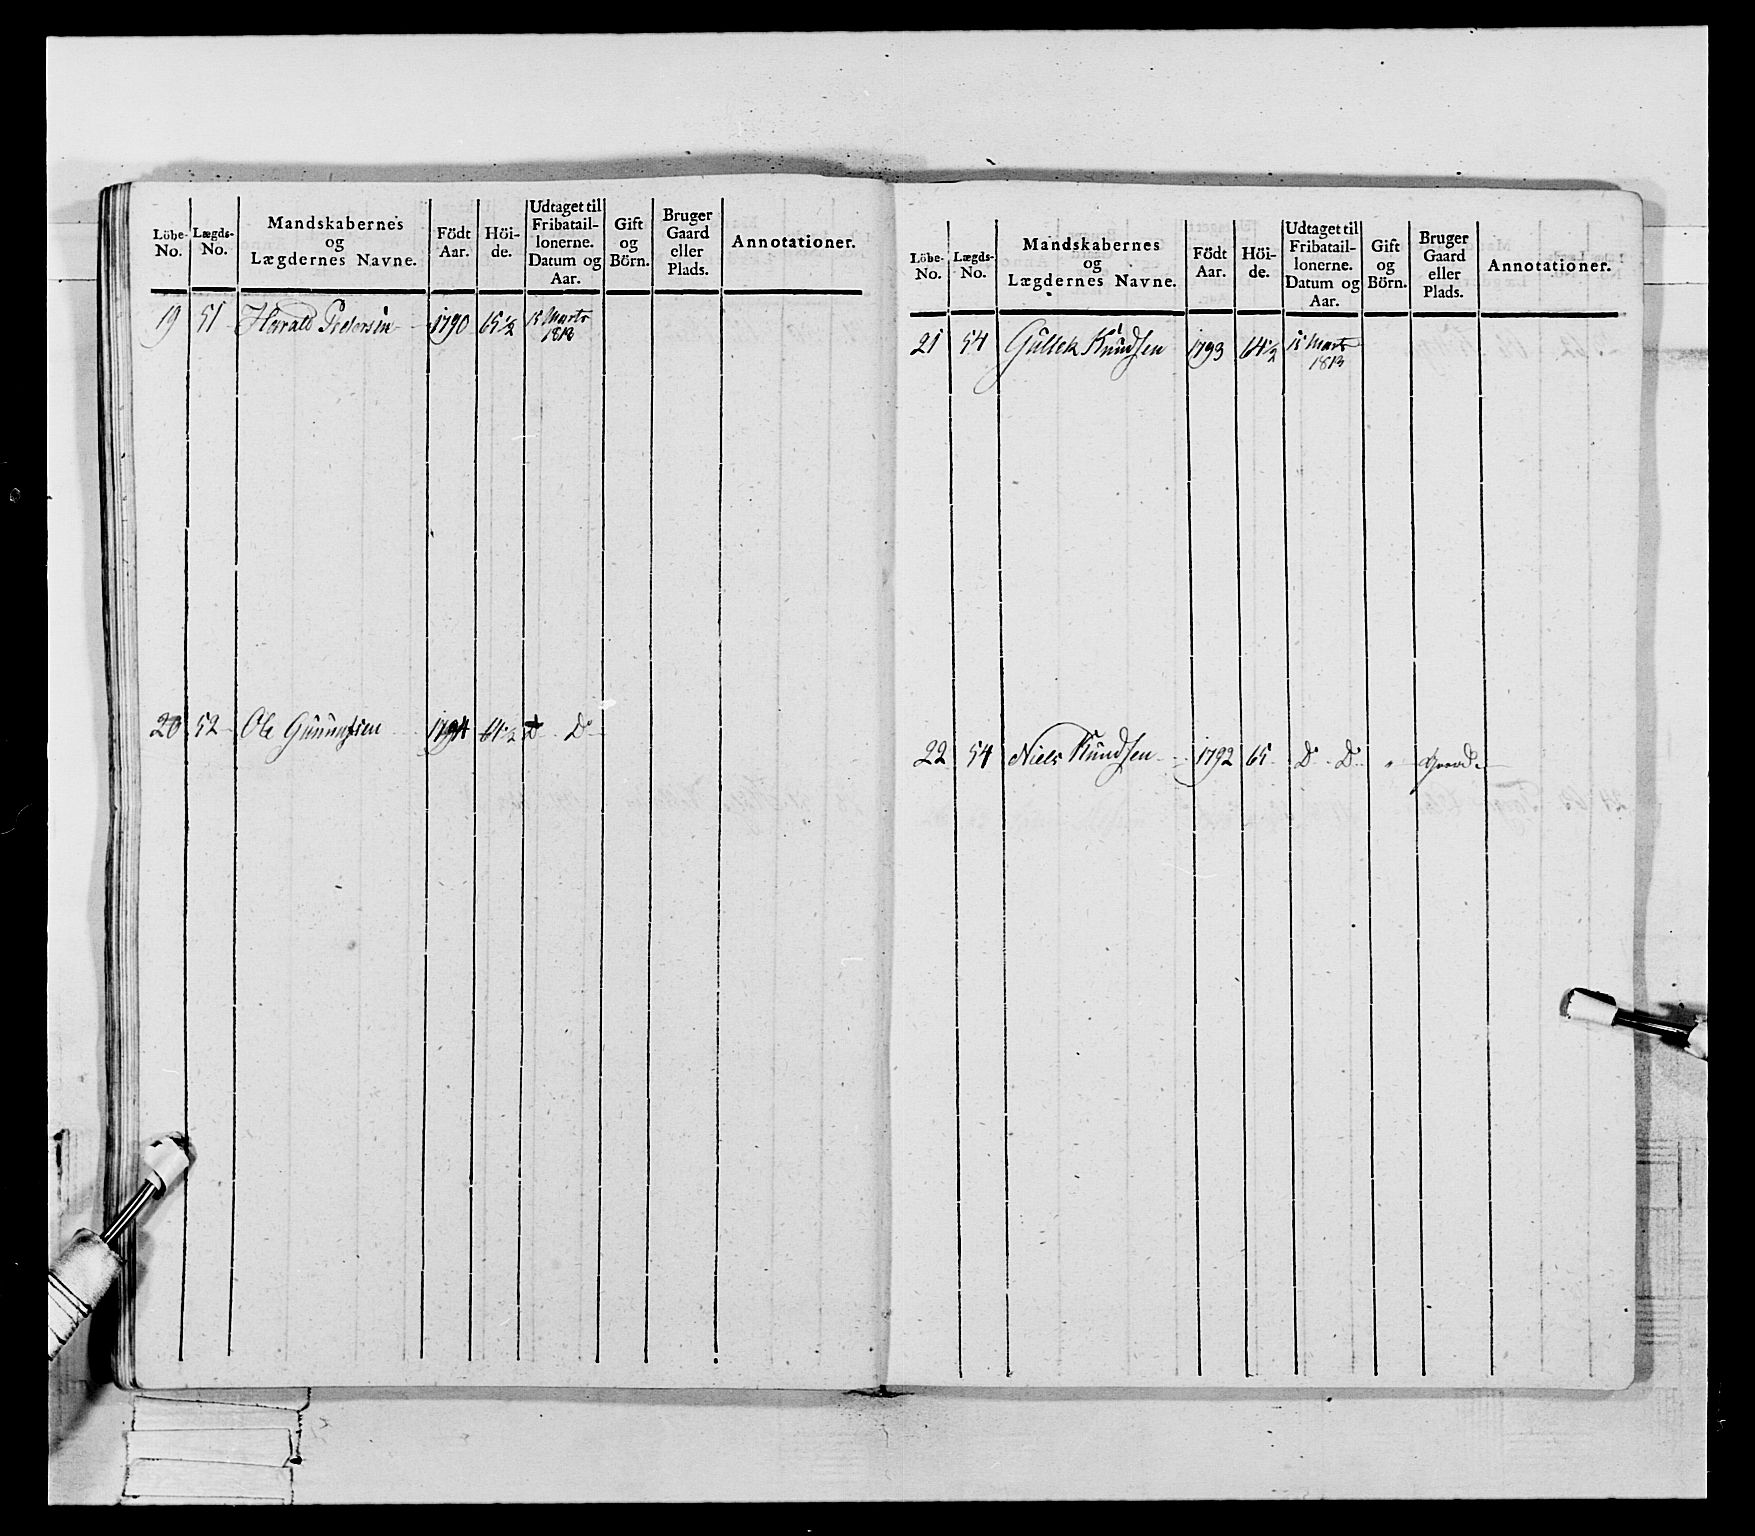 Löbe-No. Lægds-No. Mandskabernes og Lægdernes Navne. Födt Aar. Höide. Udtaget til Fribataillonerne. Datum og Aar. Gift og Börn. Bruger Gaard eller Plads. Annotationer.
19 51 Harald Pedersen 1790 65½ 15 Marts 1813
20 52 Ole 1794 64½ Do Do
Löbe-No. Lægds-No. Mandskabernes og Lægdernes Navne. Födt Aar. Höide. Udtaget til Fribataillonerne. Datum og Aar. Gift og Börn. Bruger Gaard eller Plads. Annotationer.
21 54 Gullek Knudsen 1793 64½ 15 Marts 1813
22 54 Niels Knudsen 1792 65 Do Do "